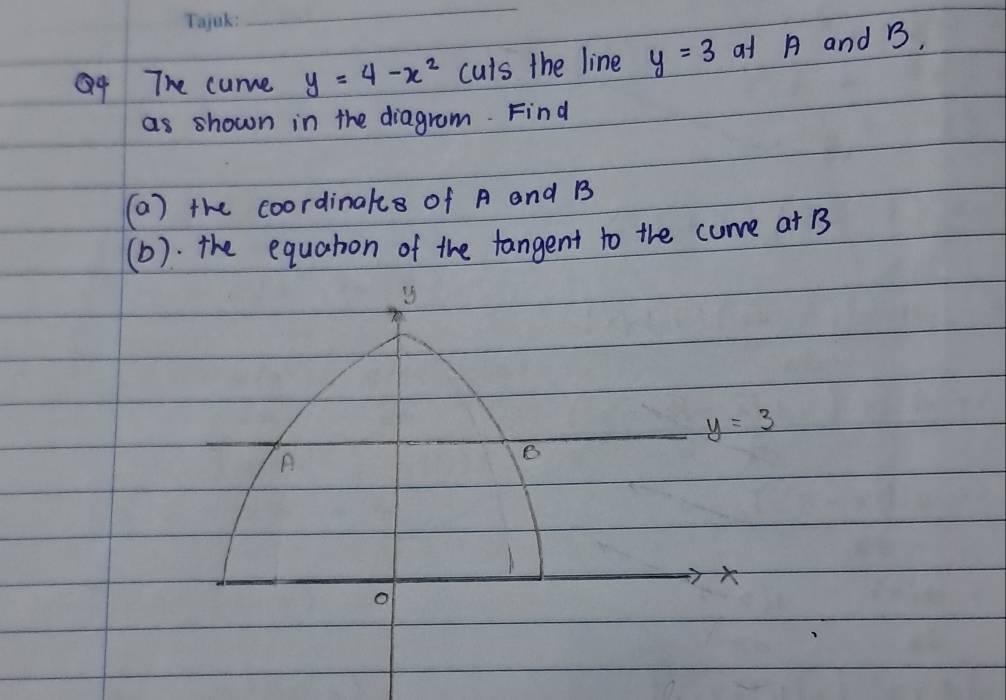 Tajuk:
Q4 The curve y = 4 - x² cuts the line y = 3 at A and B.
as shown in the diagram. Find
(a) the coordinates of A and B
(b). the equation of the tangent to the curve at B
y
y = 3
A
B
x
O